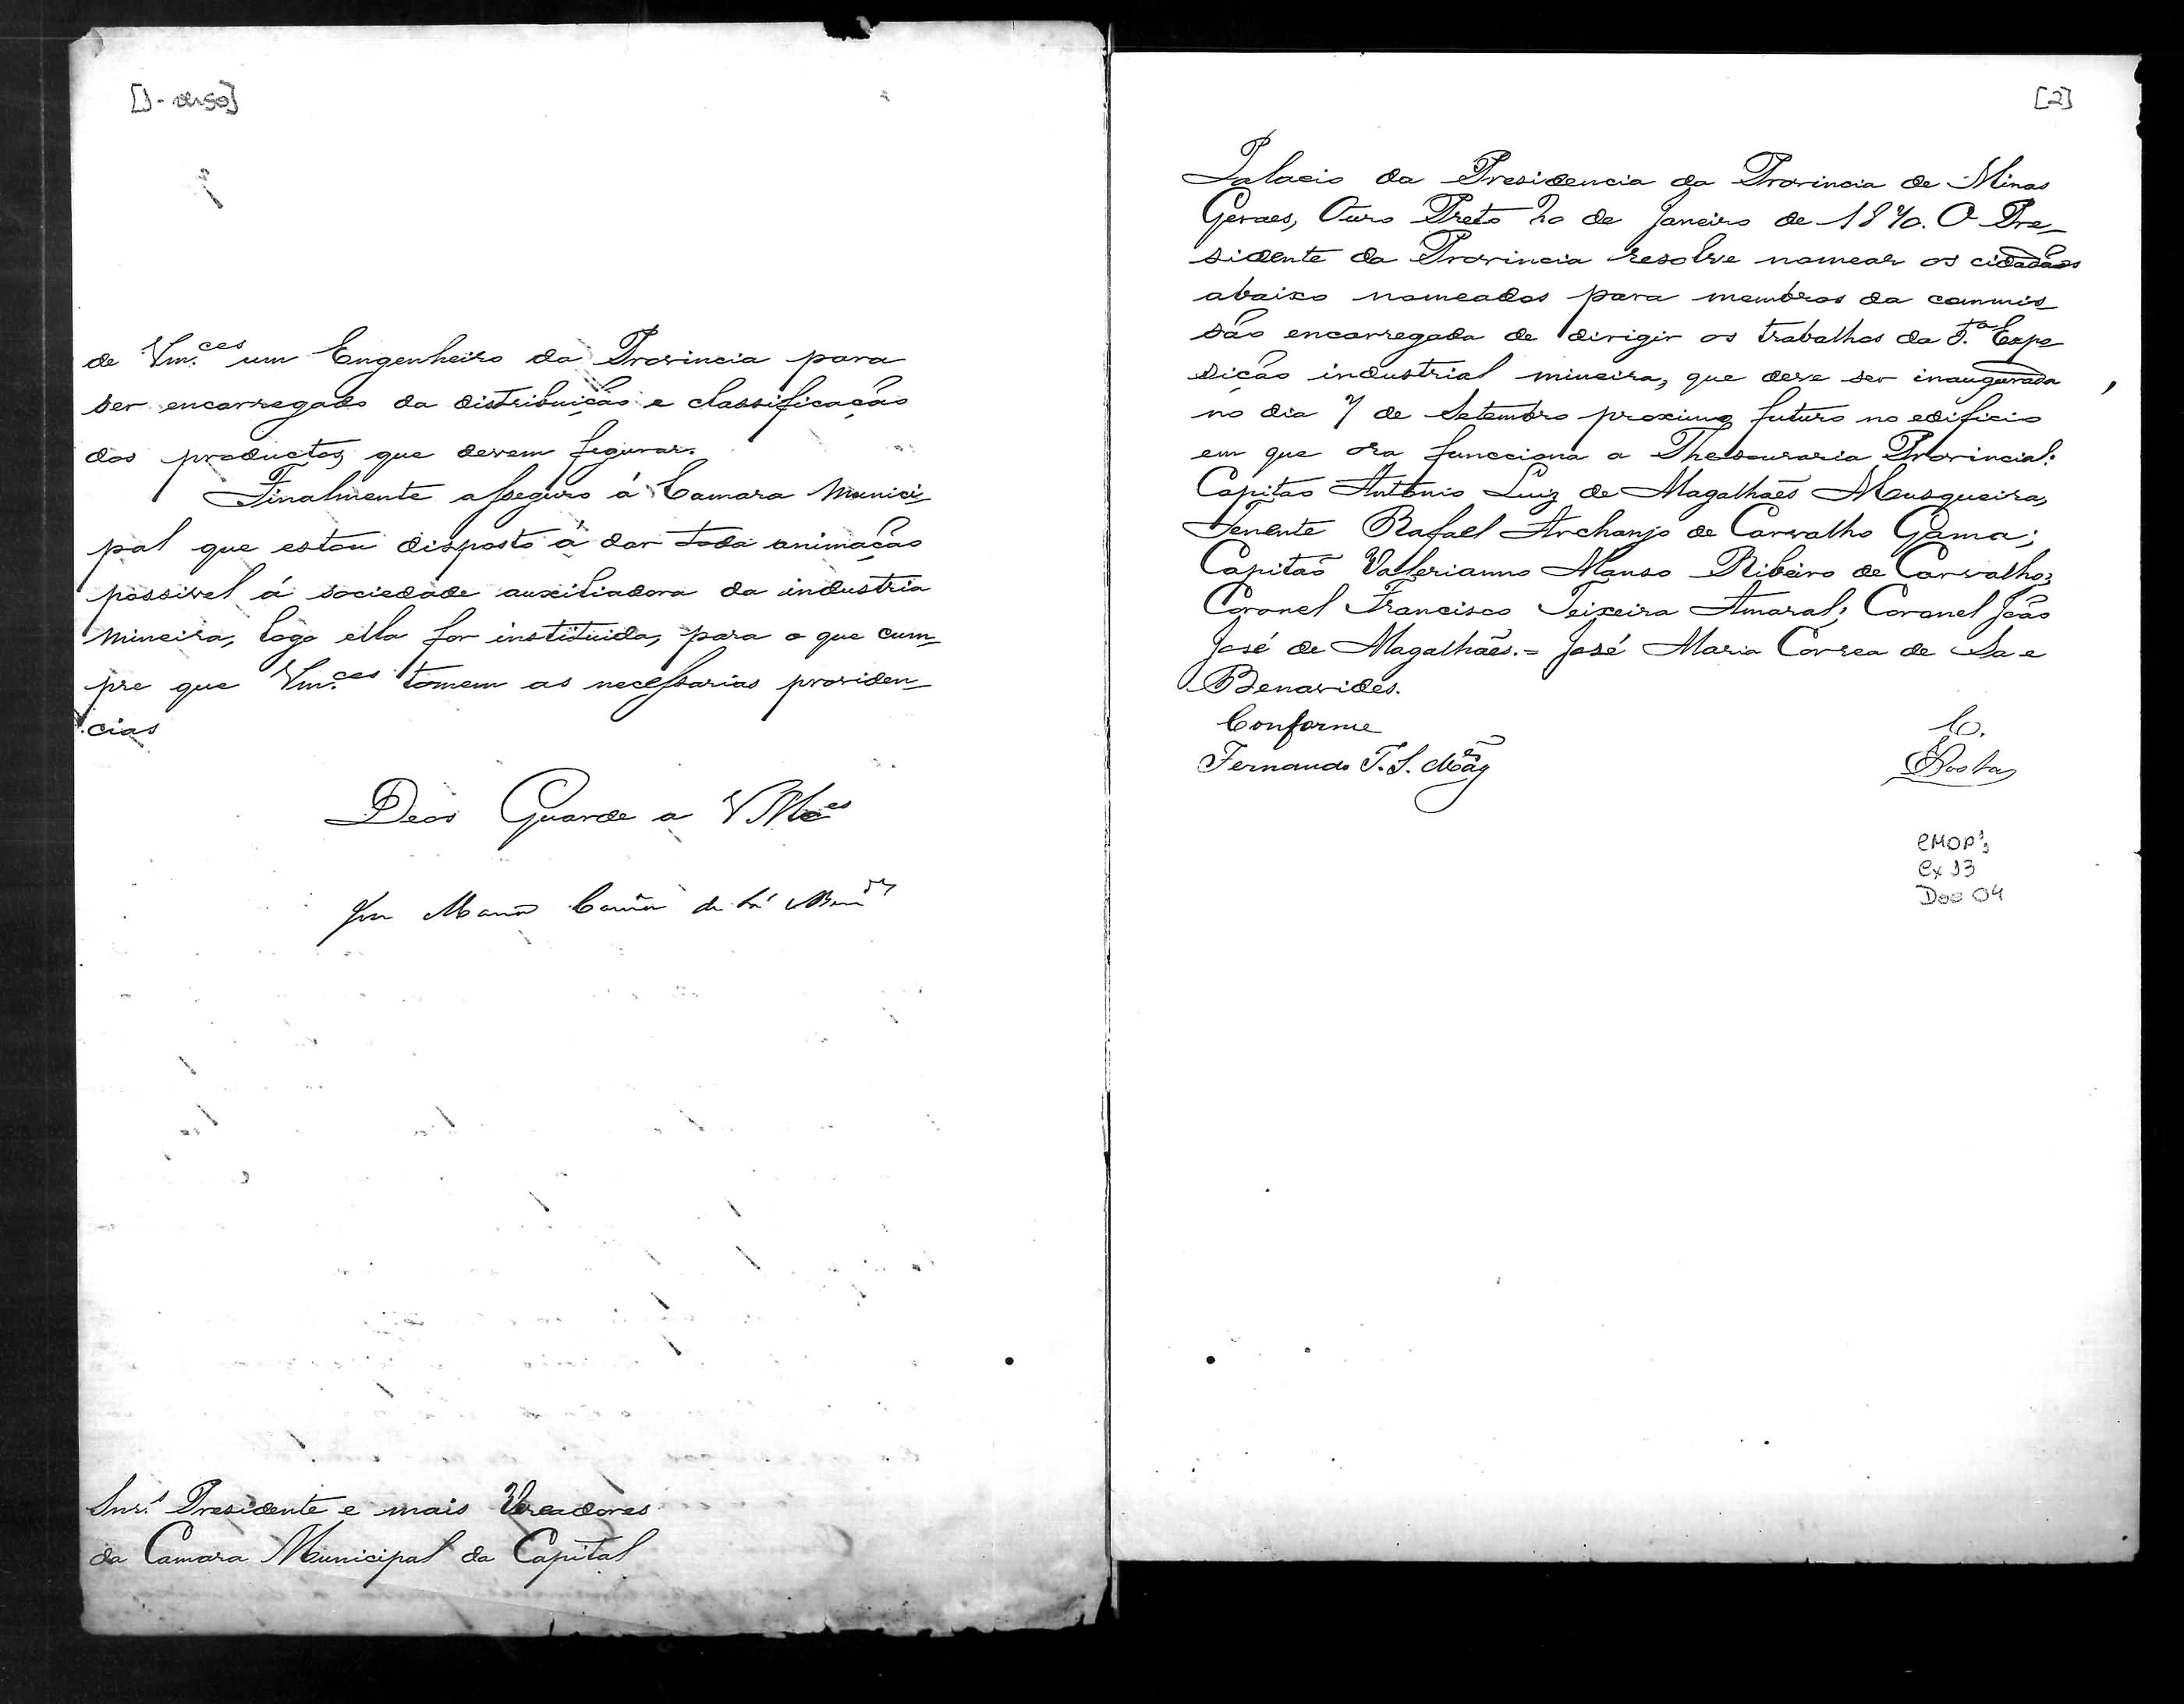 [1-verso]
de Vm.ces um Engenheiro da Provincia para
ser encarregado da distribuição e classificação
dos productos que devem figurar.
Finalmente asseguro á Camara Munici-
pal que estou disposto á dar toda animação
possivel á sociedade auxiliadora da industria
mineira, logo ella for instituida, para o que cum-
pre que Vm.ces tomem as necessarias providen-
cias
Deos Guarde a VMces
de Sá
Snr.s Presidente e mais Vereadores
da Camara Municipal da Capital
[2]
Palacio da Presidencia da Provincia de Minas
Geraes, Ouro Preto 20 de Janeiro de 1870. O Pre-
sidente da Provincia resolve nomear os cidadãos
abaixo nomeados para membros da commis-
são encarregada de dirigir os trabalhos da Expo
sição industrial mineira, que deve ser inaugurada
no dia 7 de Setembro proximo futuro no edificio
em que ora funcciona a Thesouraria Provincial:
Capitão Antonio Luiz de Magalhães Musqueira,
Tenente Rafael Archanjo de Carvalho Gama;
Capitão Valerianno Manso Ribeiro de Carvalho;
Coronel Francisco Teixeira Amaral; Coronel João
José de Magalhães.= José Maria Correa de Sa e
Benavides.
Conforme
Fernando T. S. Mag
C.
Costa
CMOP
Cx 13
Doc 04